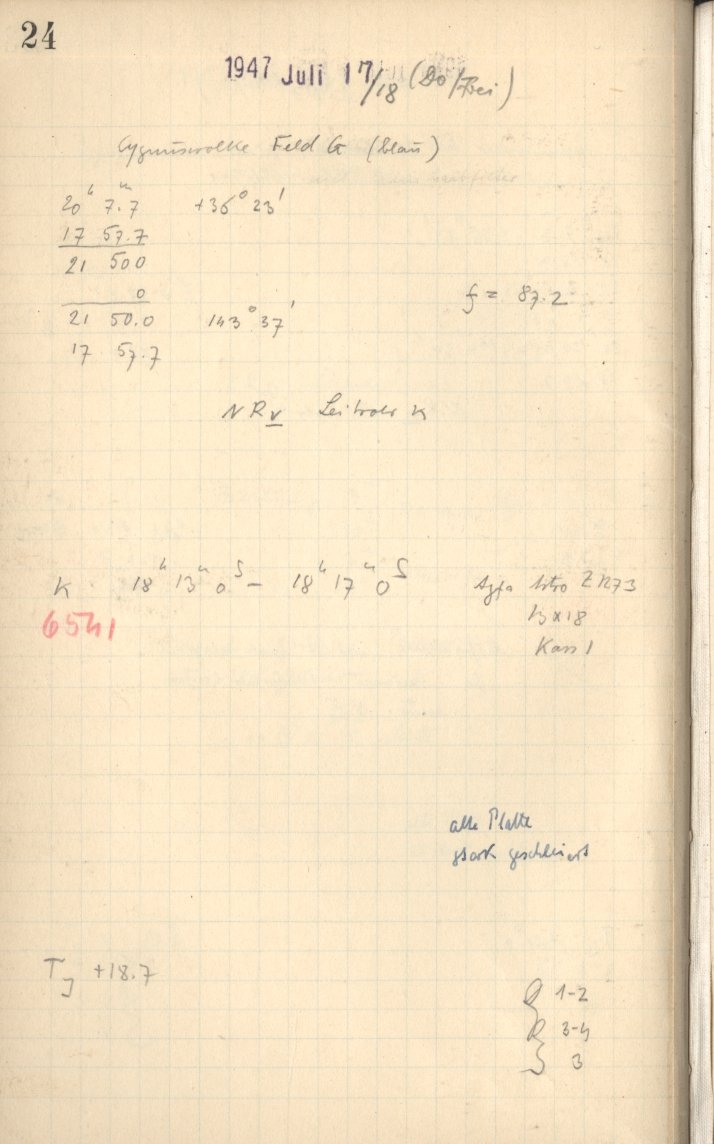 24
1947 Juli 17/18 (Do/Frei)
Cygnuswolke Feld G (blau)
20ʰ 7.ᵐ7 +36° 23'
17 57.7
21 50 0
0
f = 87.2
21 50.0 143° 37'
17 57.7
NR V Leitrohr K
K 18ʰ 13ᵐ 0ˢ – 18ʰ 17ᵐ 0ˢ Agfa Astro Z 1273
13x18
6541
Kass 1
alte Platte
stark geschleiert
T_J +18.7
1-2
R 3-4
S 3